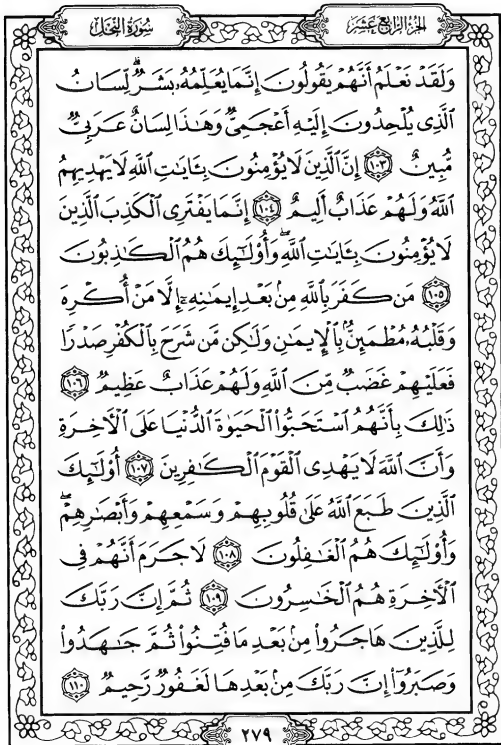 سُورَةُ النَّحْلِ
الجُزْءُ الرَّابِعَ عَشَرَ
وَلَقَدْ نَعْلَمُ أَنَّهُمْ يَقُولُونَ إِنَّمَا يُعَلِّمُهُۥ بَشَرٌۗ لِّسَانُ
ٱلَّذِى يُلْحِدُونَ إِلَيْهِ أَعْجَمِىٌّ وَهَٰذَا لِسَانٌ عَرَبِىٌّ
مُّبِينٌ ١٠٣ إِنَّ ٱلَّذِينَ لَا يُؤْمِنُونَ بِـَٔايَٰتِ ٱللَّهِ لَا يَهْدِيهِمُ
ٱللَّهُ وَلَهُمْ عَذَابٌ أَلِيمٌ ١٠٤ إِنَّمَا يَفْتَرِى ٱلْكَذِبَ ٱلَّذِينَ
لَا يُؤْمِنُونَ بِـَٔايَٰتِ ٱللَّهِۖ وَأُو۟لَٰٓئِكَ هُمُ ٱلْكَٰذِبُونَ
١٠٥ مَن كَفَرَ بِٱللَّهِ مِنۢ بَعْدِ إِيمَٰنِهِۦٓ إِلَّا مَنْ أُكْرِهَ
وَقَلْبُهُۥ مُطْمَئِنٌّۢ بِٱلْإِيمَٰنِ وَلَٰكِن مَّن شَرَحَ بِٱلْكُفْرِ صَدْرًا
فَعَلَيْهِمْ غَضَبٌ مِّنَ ٱللَّهِ وَلَهُمْ عَذَابٌ عَظِيمٌ ١٠٦
ذَٰلِكَ بِأَنَّهُمُ ٱسْتَحَبُّوا۟ ٱلْحَيَوٰةَ ٱلدُّنْيَا عَلَى ٱلْءَاخِرَةِ
وَأَنَّ ٱللَّهَ لَا يَهْدِى ٱلْقَوْمَ ٱلْكَٰفِرِينَ ١٠٧ أُو۟لَٰٓئِكَ
ٱلَّذِينَ طَبَعَ ٱللَّهُ عَلَىٰ قُلُوبِهِمْ وَسَمْعِهِمْ وَأَبْصَٰرِهِمْۖ
وَأُو۟لَٰٓئِكَ هُمُ ٱلْغَٰفِلُونَ ١٠٨ لَا جَرَمَ أَنَّهُمْ فِى
ٱلْءَاخِرَةِ هُمُ ٱلْخَٰسِرُونَ ١٠٩ ثُمَّ إِنَّ رَبَّكَ
لِلَّذِينَ هَاجَرُوا۟ مِنۢ بَعْدِ مَا فُتِنُوا۟ ثُمَّ جَٰهَدُوا۟
وَصَبَرُوٓا۟ إِنَّ رَبَّكَ مِنۢ بَعْدِهَا لَغَفُورٌ رَّحِيمٌ ١١٠
٢٧٩